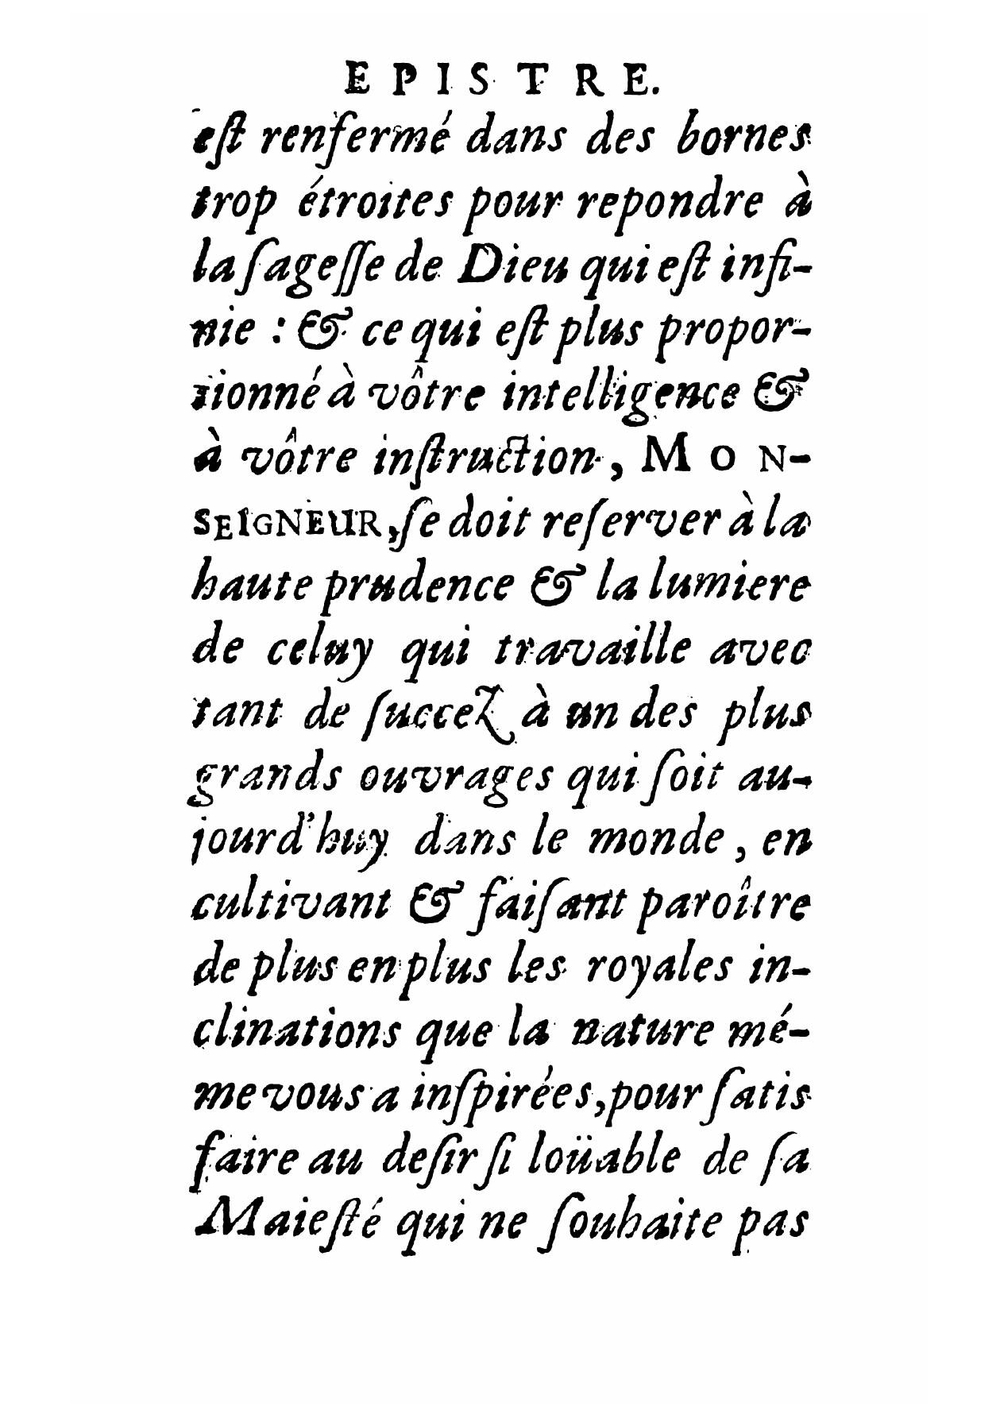 EPISTRE.
eſt renfermé dans des bornes
trop étroites pour repondre à
la ſageſſe de Dieu qui eſt infi-
nie : & ce qui eſt plus propor-
tionné à vôtre intelligence &
à vôtre inſtruction, MON-
SEIGNEUR, ſe doit reſerver à la
haute prudence & la lumiere
de celuy qui travaille avec
tant de ſuccez à un des plus
grands ouvrages qui ſoit au-
jourd'huy dans le monde, en
cultivant & faiſant paroître
de plus en plus les royales in-
clinations que la nature mé-
me vous a inſpirées, pour ſatis
faire au deſir ſi loüable de ſa
Maieſté qui ne ſouhaite pas